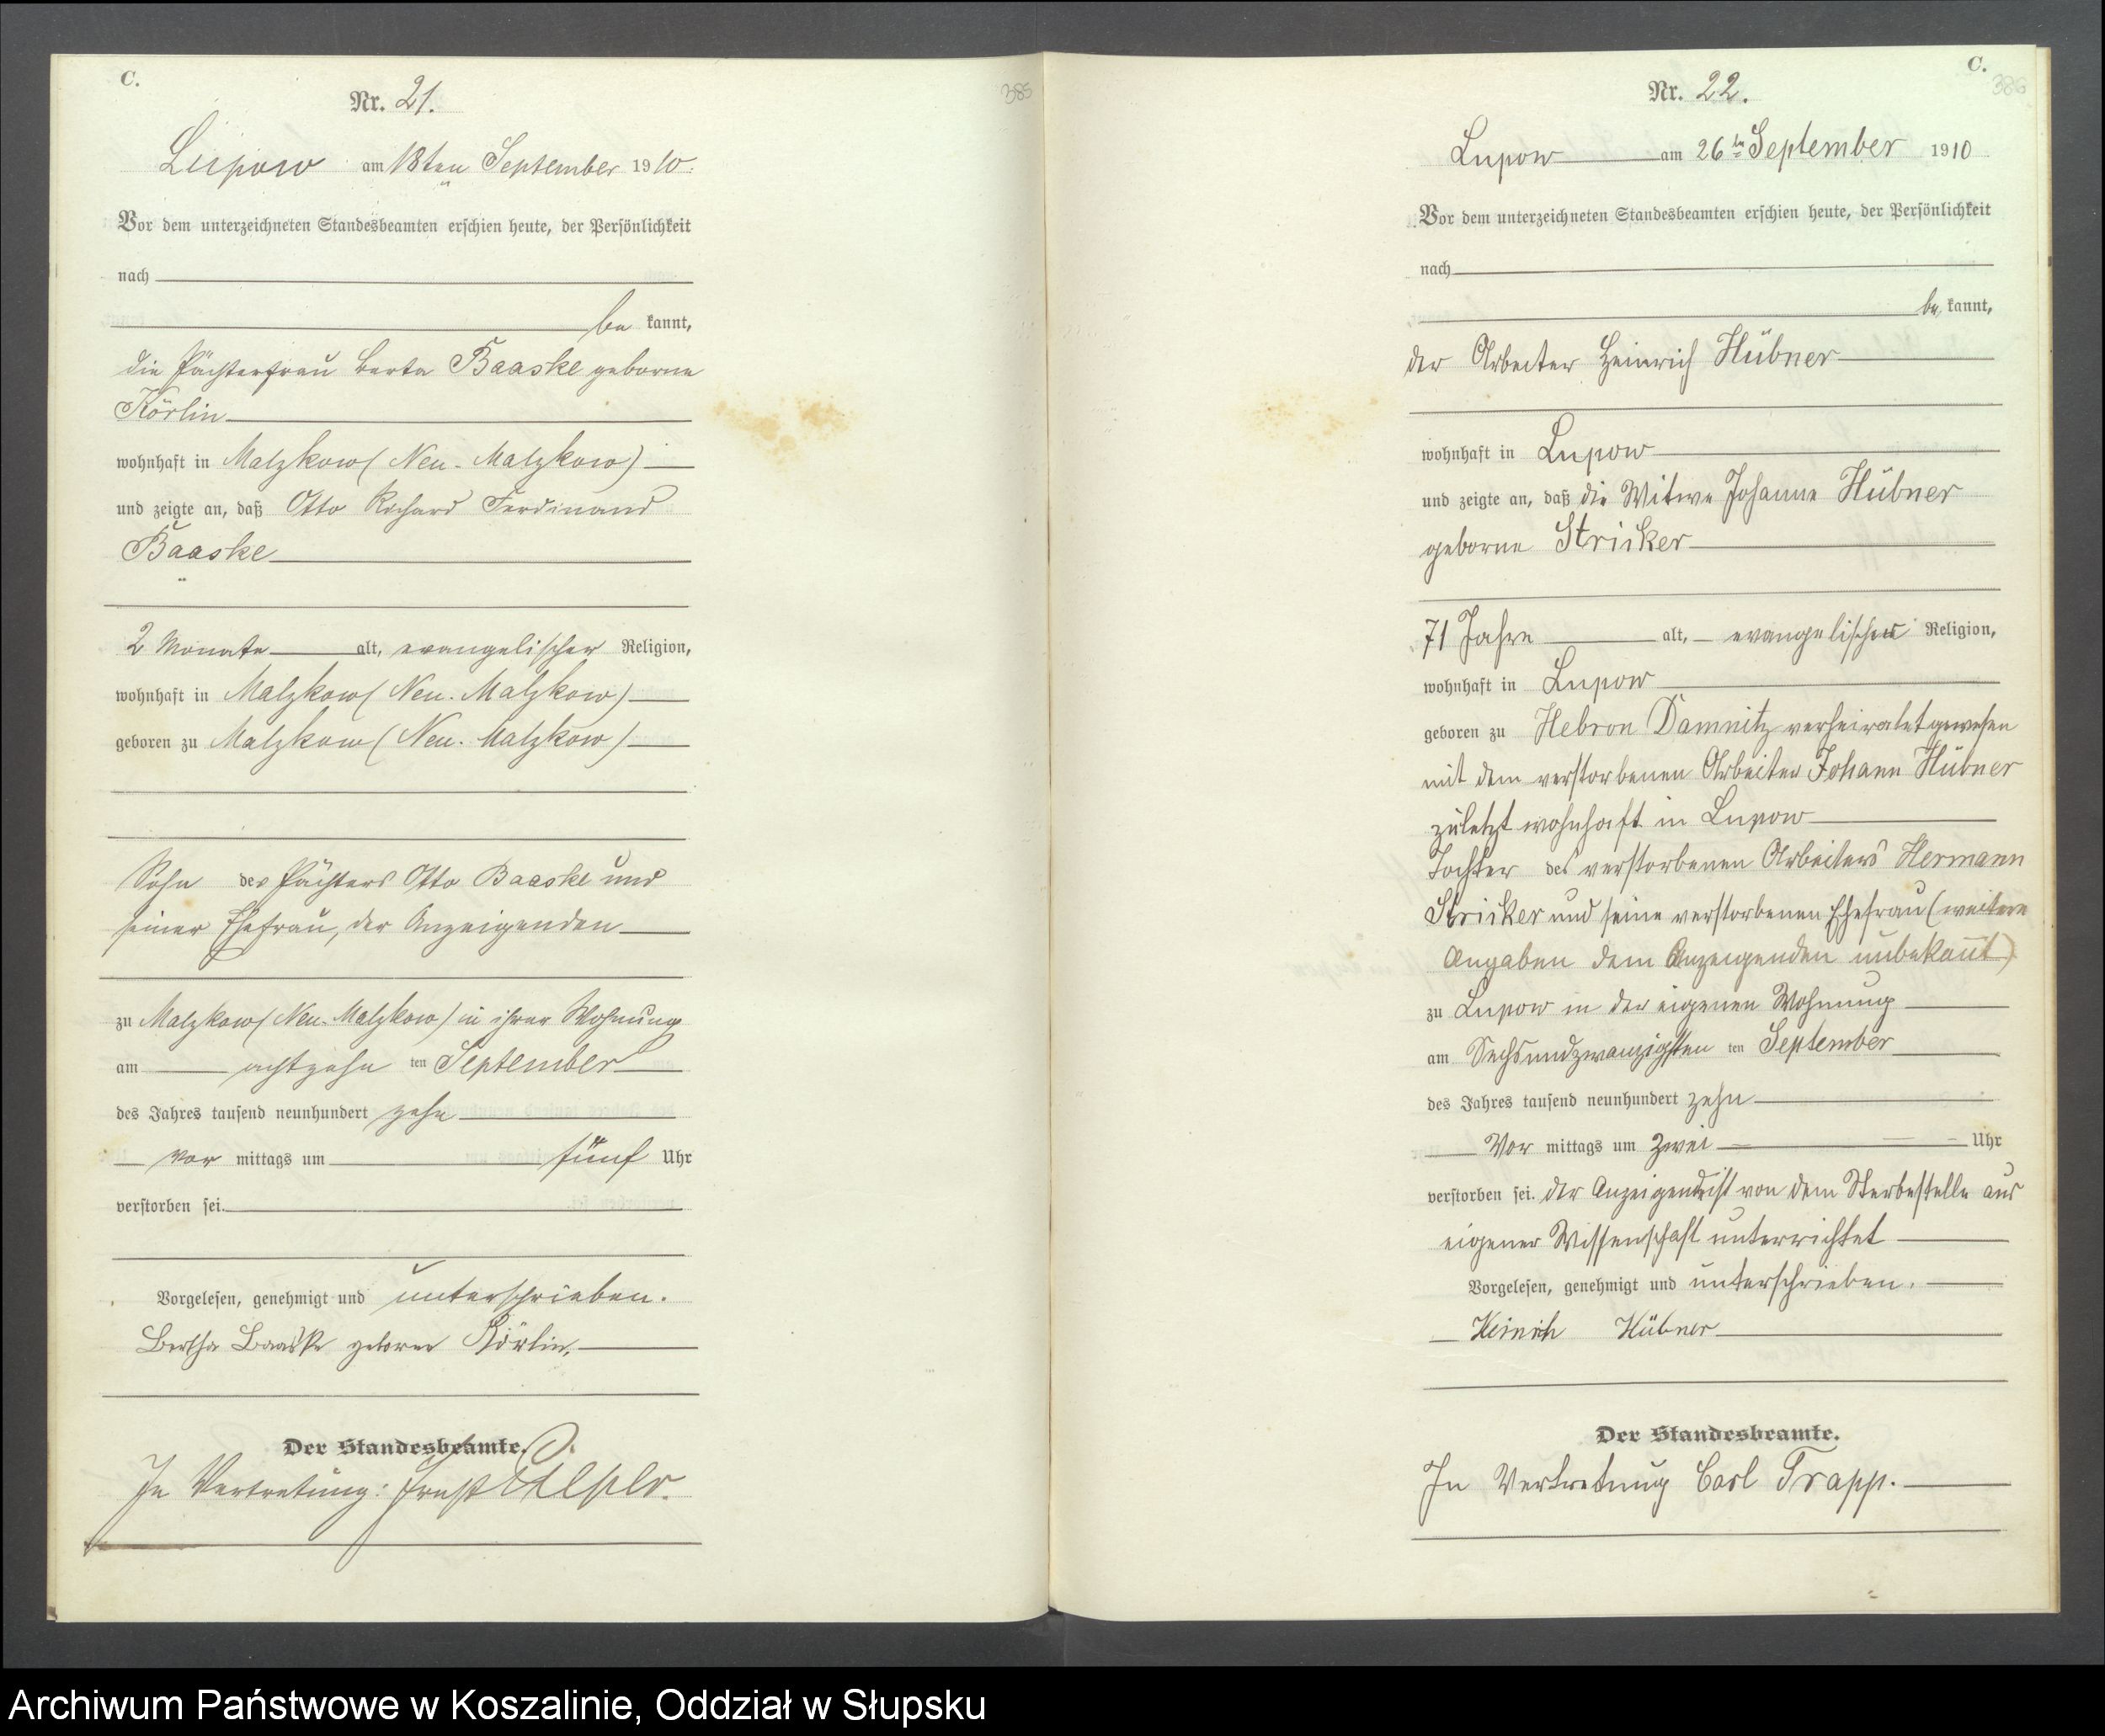 C.
Nr. 21.
385
Lupow am 18ten September 1910.
Vor dem unterzeichneten Standesbeamten erschien heute, der Persönlichkeit
nach
be kannt,
die Pächterfrau Berta Baaske geborne
Körlin
wohnhaft in Malzkow (Neu-Malzkow)
und zeigte an, daß Otto Richard Ferdinand
Baaske
2 Monate alt, evangelischer Religion,
wohnhaft in Malzkow (Neu-Malzkow)
geboren zu Malzkow (Neu-Malzkow)
Sohn des Pächters Otto Baaske und
seiner Ehefrau, der Anzeigenden
zu Malzkow (Neu-Malzkow) in ihrer Wohnung
am achtzehn ten September
des Jahres tausend neunhundert zehn
vor mittags um fünf Uhr
verstorben sei.
Vorgelesen, genehmigt und unterschrieben.
Bertha Baaske geborne Körlin.
Der Standesbeamte.
In Vertretung: Ernst
C.
386
Nr. 22.
Lupow am 26ten September 1910
Vor dem unterzeichneten Standesbeamten erschien heute, der Persönlichkeit
nach
be kannt,
der Arbeiter Heinrich Hübner
wohnhaft in Lupow
und zeigte an, daß die Witwe Johanne Hübner
geborne Stricker
71 Jahre alt, evangelischer Religion,
wohnhaft in Lupow
geboren zu Hebron Damnitz verheiratet gewesen
mit dem verstorbenen Arbeiter Johann Hübner
zuletzt wohnhaft in Lupow
Tochter des verstorbenen Arbeiters Hermann
Stricker und seine verstorbenen Ehefrau (weitere
Angaben dem Anzeigenden unbekannt)
zu Lupow in der eigenen Wohnung
am Sechsundzwanzigsten ten September
des Jahres tausend neunhundert zehn
Vor mittags um zwei Uhr
verstorben sei. Der Anzeigende ist von dem Sterbefalle aus
eigener Wissenschaft unterrichtet
Vorgelesen, genehmigt und unterschrieben.
Heinrich Hübner
Der Standesbeamte.
In Vertretung Carl Trapp.
Archiwum Państwowe w Koszalinie, Oddział w Słupsku